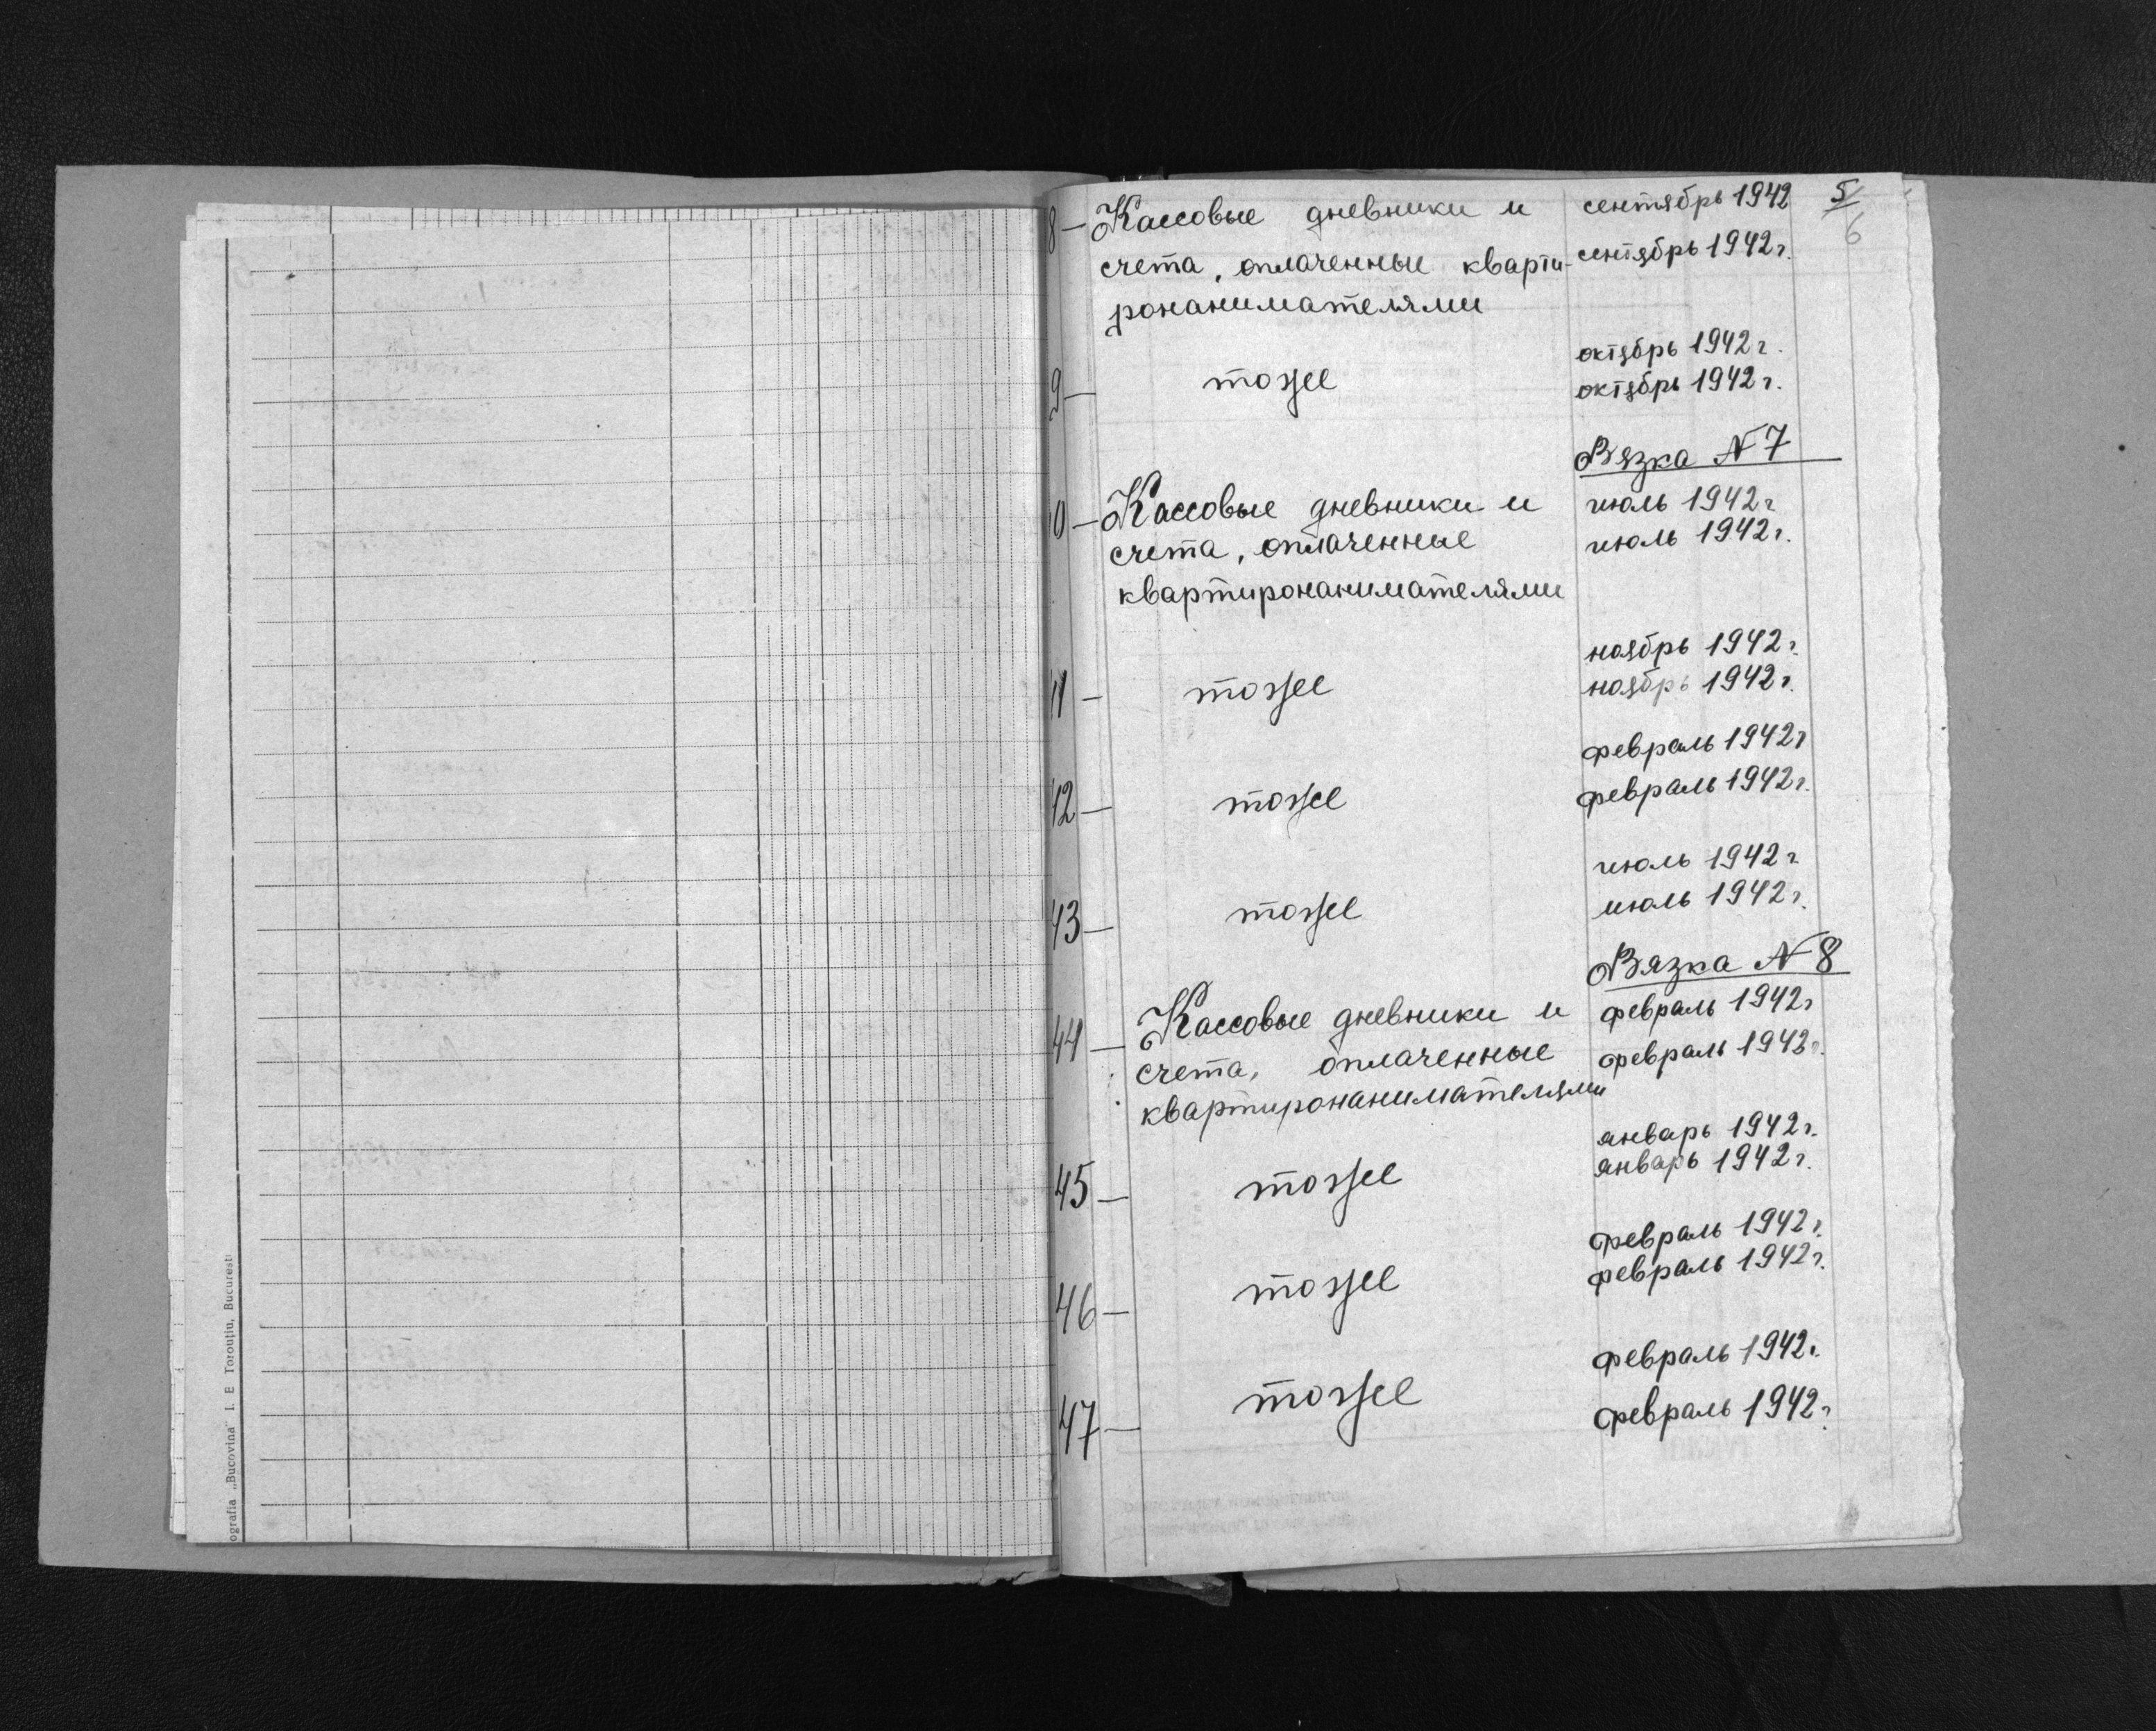 5
6
8 – Кассовые дневники и сентябрь 1942
счета, оплаченные кварти- сентябрь 1942 г.
ронанимателями
октябрь 1942 г.
9 – тоже октябрь 1942 г.
Вязка N 7
0 – Кассовые дневники и июль 1942 г
счета, оплаченные июль 1942 г.
квартиронанимателями
ноябрь 1942 г.
11 – тоже ноябрь 1942 г.
февраль 1942 г
12 – тоже февраль 1942 г.
июль 1942 г
43 – тоже июль 1942 г.
Вязка N 8
44 – Кассовые дневники и февраль 1942 г
счета, оплаченные февраль 1942 г.
квартиронанимателями
январь 1942 г.
45 – тоже январь 1942 г.
февраль 1942 г.
46 – тоже февраль 1942 г.
февраль 1942 г.
47 – тоже февраль 1942 г.
ografia „Bucovina" I. E Torouțiu, Bucuresti